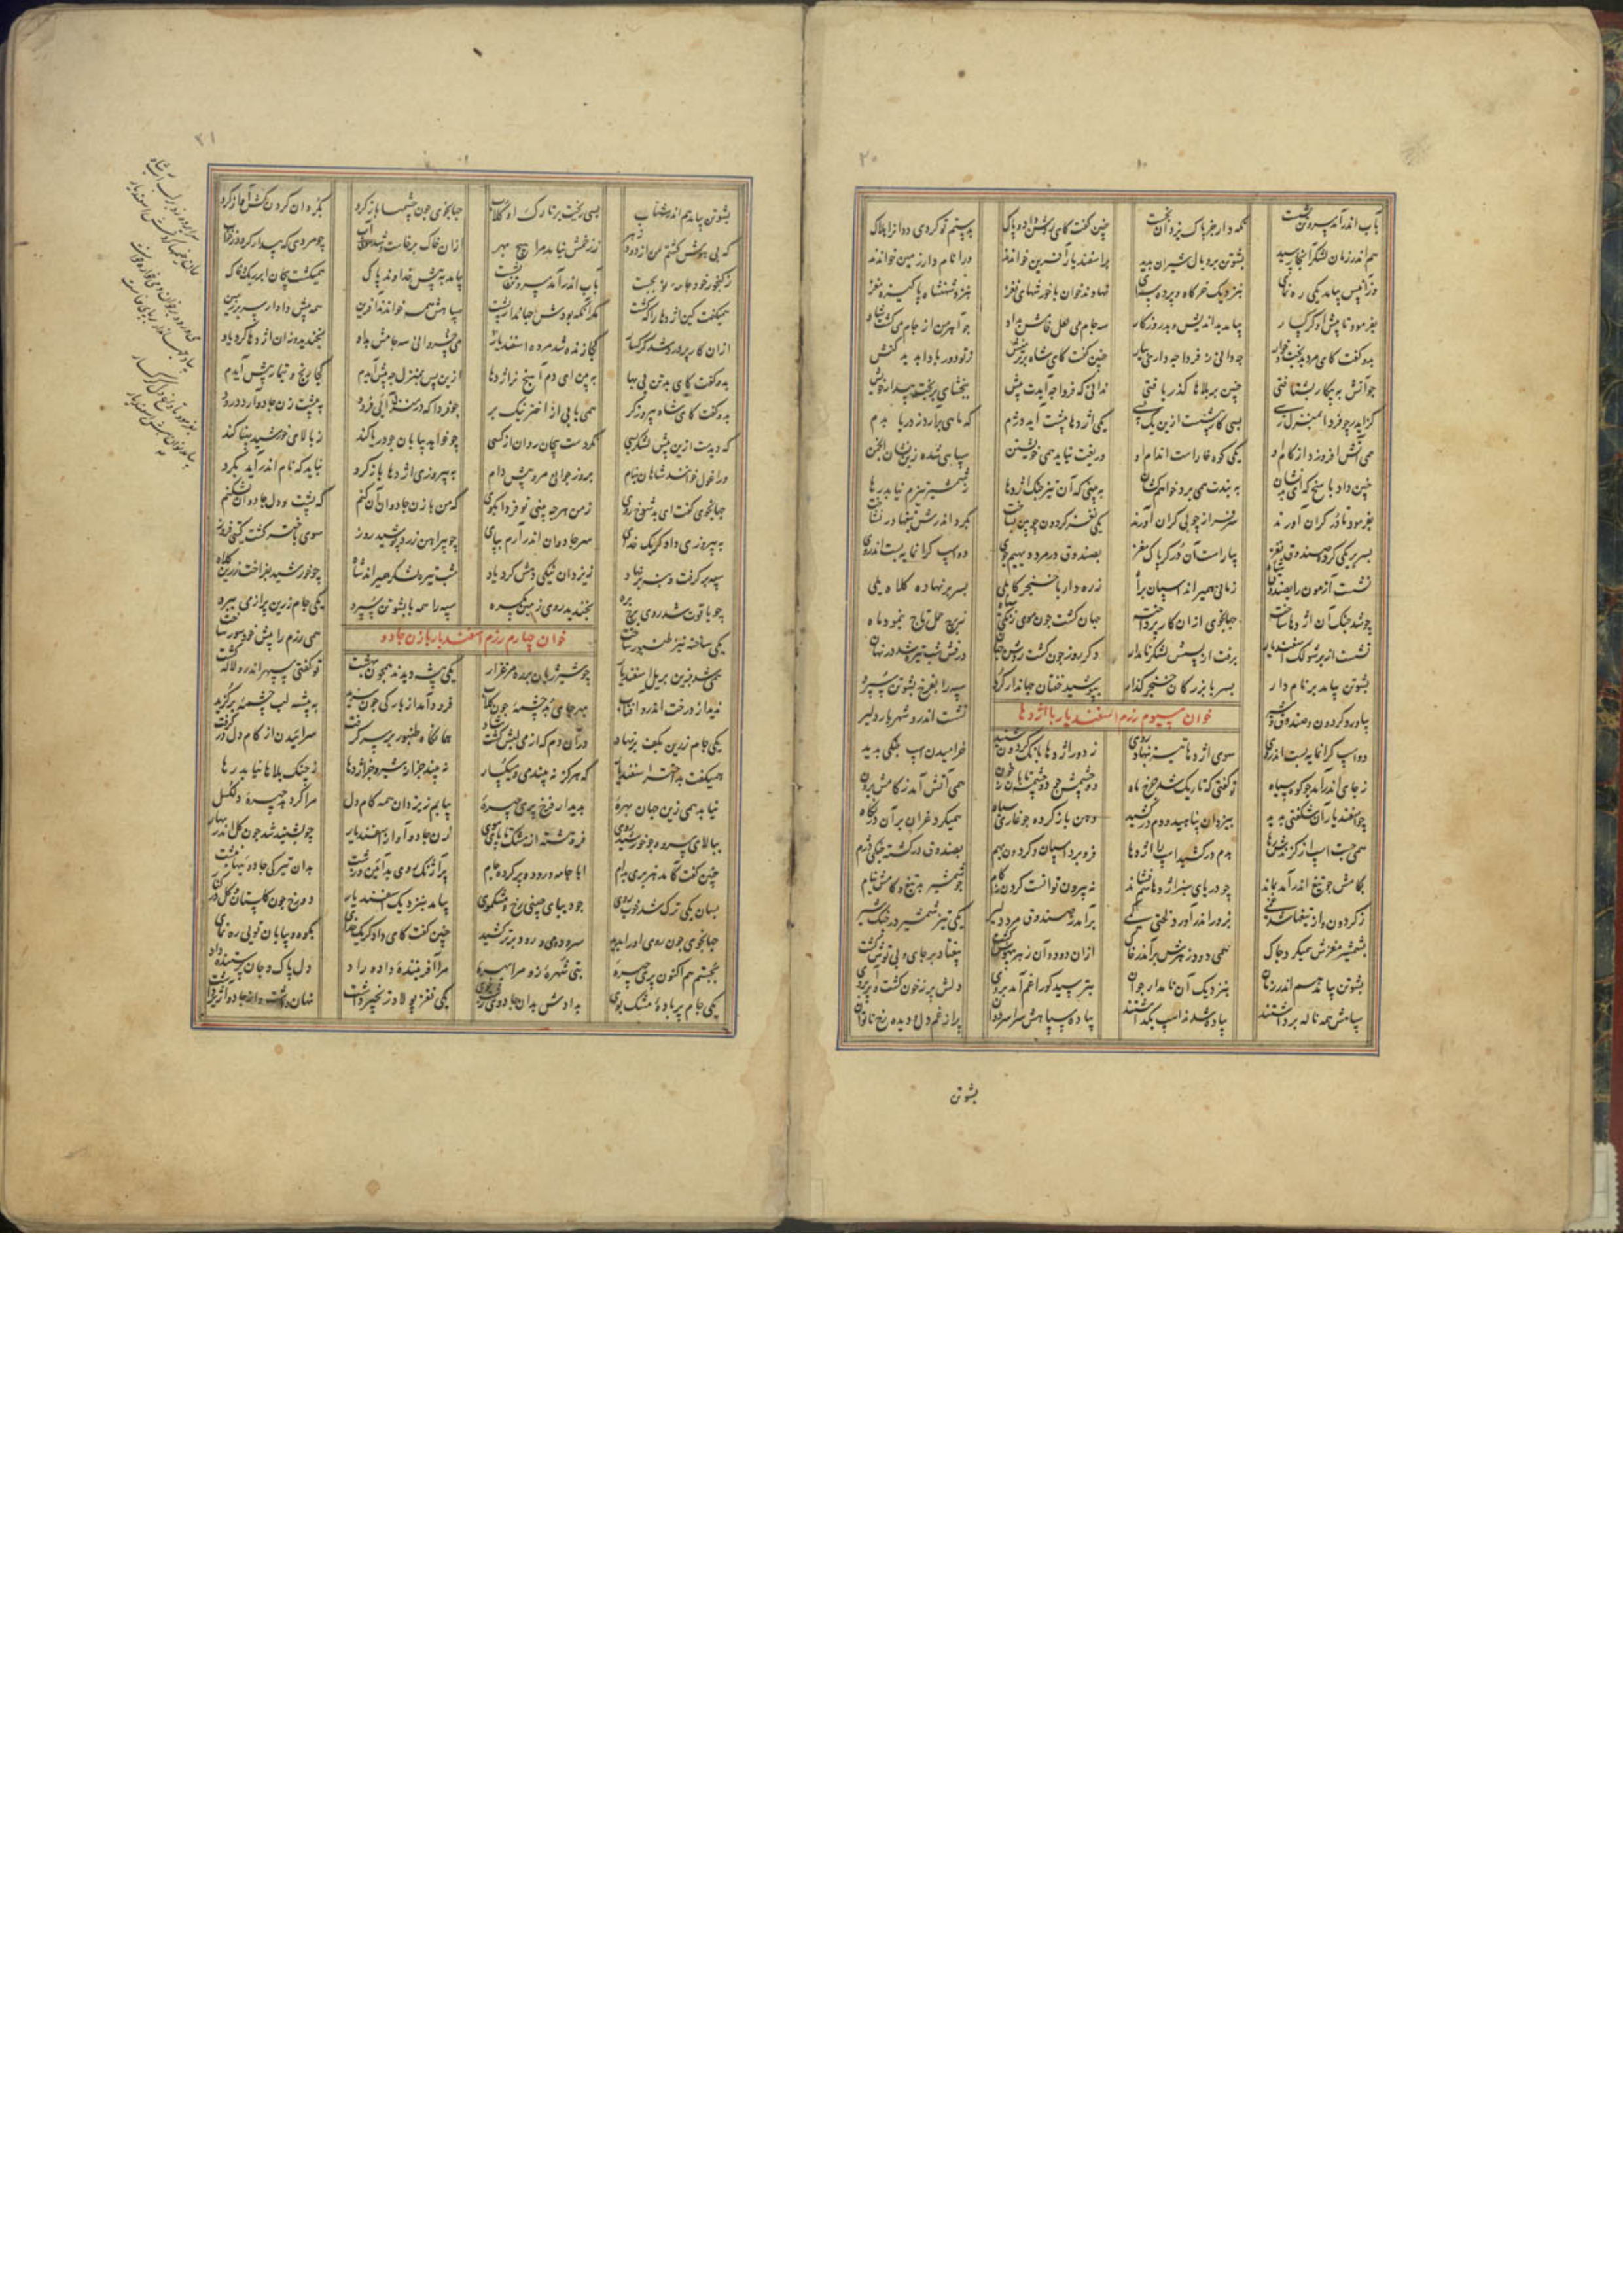 ۲۰
بآب اندر آمد سر و تن بشست نگه دار جز پاک یزدان نجست چنین گفت کای روشن داد پاک بدستم تو کردی ددانرا هلاک
هم اندر زمان لشکر آنجا رسید پشوتن بر و یال شیران بدید بر اسفندیار آفرین خواندند ورا نامدار زمین خواندند
وزانپس بیامد یکی رهنمای بنزدیک خرگاه و پرده سرای نهادند خوان با خورشهای نغز بنزد شهنشاه پاکیزه مغز
بفرمود تا پیش او گرگسار بیامد بداندیش و بد روزگار سه جام می لعل فامش بداد چو آهرمن از جام می گشت شاد
بدو گفت کای مرد بدبخت خوار چه دانی ز فردا چه داری بیار چنین گفت کای شاه برتر منش ز تو دور بادا بد بدکنش
چو آتش به پیکار بشتافتی چنین بر بلاها گذر یافتی ندانی که فردا چه آیدت پیش ببخشای بر بخت بیدار خویش
چو فردا بمنزل رسی بسی کار پیشست ازین یک بسی یکی اژدها پیشت آید دژم که ماهی برآرد ز دریا بدم
همی آتش افروزد از کام او یکی کوه خاراست اندام او دریغت نیاید همی خویشتن سپاهی شده زین نشان انجمن
چنین داد پاسخ که ای بدنشان به بندت همی برد خواهم کشان به بینی که آن تیز چنگ اژدها ز شمشیر تیزم نیابد رها
بفرمود تا درگران آورند چوبی گران آورند یکی نغز گردون چوبین بساخت بگرد اندرش تیغها در نشاخت
بسر بر یکی گرد صندوق نغز بیاراست آن درگر پاک مغز بصندوق در مرد دیهیم جوی دو اسپ گرانمایه بست اندروی
نشست آزمون را بصندوق شاه زمانی همیراند اسپان براه زره دار با خنجر کابلی بسر بر نهاده کلاه یلی
چو شد جنگ آن اژدها ساخته جهانجوی ازان کار پرداخته جهان گشت چون روی زنگی سیاه ز برج حمل تاج بنمود ماه
نشست از بر شولک اسفندیار برفت از پسش لشکر نامدار دگر روز چون گشت روشن جهان درفش شب تیره شد در نهان
پشوتن بیامد بر نامدار پسر با بزرگان خنجر گذار بپوشید خفتان جهاندار گرد سپه را بفرخ پشوتن سپرد
خوان سیوم رزم اسفندیار با اژدها
بیاورد گردون و صندوق شیر نشست اندرو شهریار دلیر
دو اسپ گرانمایه بست اندروی سوی اژدها تیز بنهاد روی ز دور اژدها بانگ گردون شنید خرامیدن اسپ جنگی بدید
ز جای اندر آمد چو کوه سیاه تو گفتی که تاریک شد چرخ و ماه دو چشمش چو دو چشمه تابان ز خون همی آتش آمد ز کامش برون
چو اسفندیار آن شگفتی بدید بیزدان پناهید و دم درکشید دهن باز کرده چو غاری سیاه همیکرد غران بر آن در نگاه
همی جست اسپ از گزندش رها بدم درکشید اسپ را اژدها فرو برد اسپان و گردون بهم بصندوق در گشته جنگی دژم
بکامش چو تیغ اندر آمد بماند چو دریای سبز اژدها فشاند نه بیرون توانست کردن ز کام چو شمشیر بد تیغ و کامش نیام
ز گردون و از تیغها شد غمی بزور اندر آورد لختی کمی برآمد ز صندوق مرد دلیر یکی تیز شمشیر در چنگ شیر
بشمشیر مغزش همیکرد چاک همی دود زهرش برآمد ز خاک ازان دود و آن زهر بیهوش گشت بیفتاد بر جای و بی توش گشت
پشوتن بیامد هم اندر زمان بنزدیک آن نامدار جوان بترسید کو را غم آمد بروی دلش پر ز خون گشت و پر آب روی
سپاهش همه ناله برداشتند پیاده شد اسپ بگذاشتند پیاده سپاهش سراسر دوان پر از غم دل و دیده رخ ناتوان
پشوتن
۲۱
پشوتن بیامد هم اندر شتاب بسی ریخت بر تارک او گلاب جهانجوی چون چشمها باز کرد بگردان گردن کش آواز کرد
که بی هوش گشتم من از دود زهر ز زخمش نیامد مرا هیچ بهر ازان خاک برخاست و شد سوی آب چو مردی که بیدار گردد ز خواب
ز گنجور خود جامه نو بجست بآب اندر آمد سر و تن بشست بیامد به پیش خداوند پاک همیگشت پیچان ابر خاک
همیگفت کین اژدها را که کشت مگر آنکه بودش جهاندار پشت سپاهش همه خواندند آفرین همه پیش دادار سر بر زمین
ازان کار پر درد شد گرگسار کجا زنده شد مرده اسفندیار می خسروانی سه جامش بداد بخندید وزان اژدها کرد یاد
بدو گفت کای بدتن بی بها ببین ای دم آهنج نر اژدها ازین پس بمنزل چه پیش آیدم کجا رنج و تیمار پیش آیدم
بدو گفت کای شاه پیروزگر همی یابی از اختر نیک بر چو فردا که در منزل آیی فرود به پیشت زن جادو آرد درود
که دیدست ازین پیش لشکر بسی نکردست پیچان روان از کسی چو خواهد بیابان چو دریا کند ز بالای خورشید پهنا کند
ورا غول خوانند شاهان بنام بروز جوانی مرو پیش دام به پیروزی اژدها باز گرد نباید که نام اندر آید بگرد
جهانجوی گفت ای بد شوخ روی ز من هرچه بینی تو فردا بگوی که من با زن جادوان آن کنم که پشت و دل جادوان بشکنم
به پیروزی دادگر یک خدای سر جادوان اندر آرم بپای چو پیراهن زرد پوشید روز سوی باختر گشت گیتی فروز
سپه برگرفت و بنه بر نهاد ز یزدان نیکی دهش کرد یاد شب تیره لشکر همیراند شاه چو خورشید بفراخت زرین کلاه
چو یاقوت شد روی برج بره بخندید روی زمین یکسره سپه را همه با پشوتن سپرد یکی جام زرین پر از می ببرد
خوان چهارم رزم اسفندیار با زن جادو
یکی ساخته نیز طنبور ساخت همی رزم را پیش خود سور ساخت
چو شیر ژیان بر ره مرغزار یکی بیشه دیدند همچون بهشت تو گفتی سپهر اندرو لاله کشت
ندید از درخت اندرو آفتاب بهر جای بر چشمه چون گلاب فرود آمد از بارگی چون سزید به بیشه لب چشمه برگزید
یکی جام زرین بکف برنهاد درآن دم که از می دلش گشت شاد همانگاه طنبور بر برگرفت سراییدن از کام دل درگرفت
همیگفت بداختر اسفندیار که هرگز نه بیند می و میگسار نه بیند جز از شیر و نر اژدها ز چنگ بلاها نیابد رها
نیابد همی زین جهان بهره بدیدار فرخ پری چهره بیابم ز یزدان همه کام دل مرا گر دهد چهره دلگسل
ببالای سرو و چو خورشید روی فروهشته از مشک تا پای موی زن جادو آواز اسفندیار چو بشنید شد چون گل اندر بهار
چنین گفت کامد هزبری بدام ابا جامه و رود و پر کرده جام پر آژنگ روی بد آئین و زشت بدان تیرگی جادویها نوشت
بسان یکی ترک شد خوب روی چو دیبای چینی رخ و مشکموی بیامد بنزدیک اسفندیار دو رخ چون گلستان و گل در کنار
جهانجوی چون روی او را بدید سرود و می و رود برتر کشید چنین گفت کای دادگر یک خدای بکوه و بیابان تویی رهنمای
بجستم هم اکنون پری چهره بتی شهره زو مرا بهره مرا آفریننده داد راد دل پاک و جان پرستنده داد
یکی جام پر باده مشک بوی بدادش بدان جادوی یکی نغز پولاد زنجیر داشت نهان